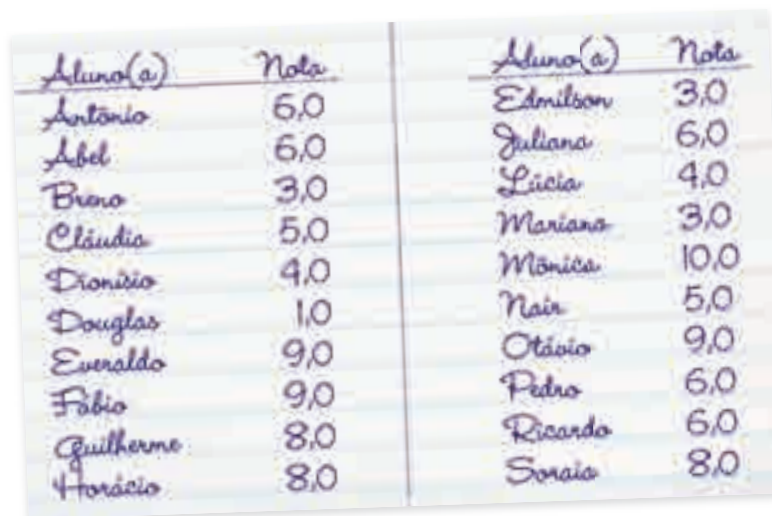 Aluno(a) Nota
Antônio 6,0
Abel 6,0
Breno 3,0
Cláudia 5,0
Dionísio 4,0
Douglas 1,0
Everaldo 9,0
Fábio 9,0
Guilherme 8,0
Horácio 8,0
Aluno(a) Nota
Edmilson 3,0
Juliana 6,0
Lúcia 4,0
Mariana 3,0
Mônica 10,0
Nair 5,0
Otávio 9,0
Pedro 6,0
Ricardo 6,0
Soraia 8,0